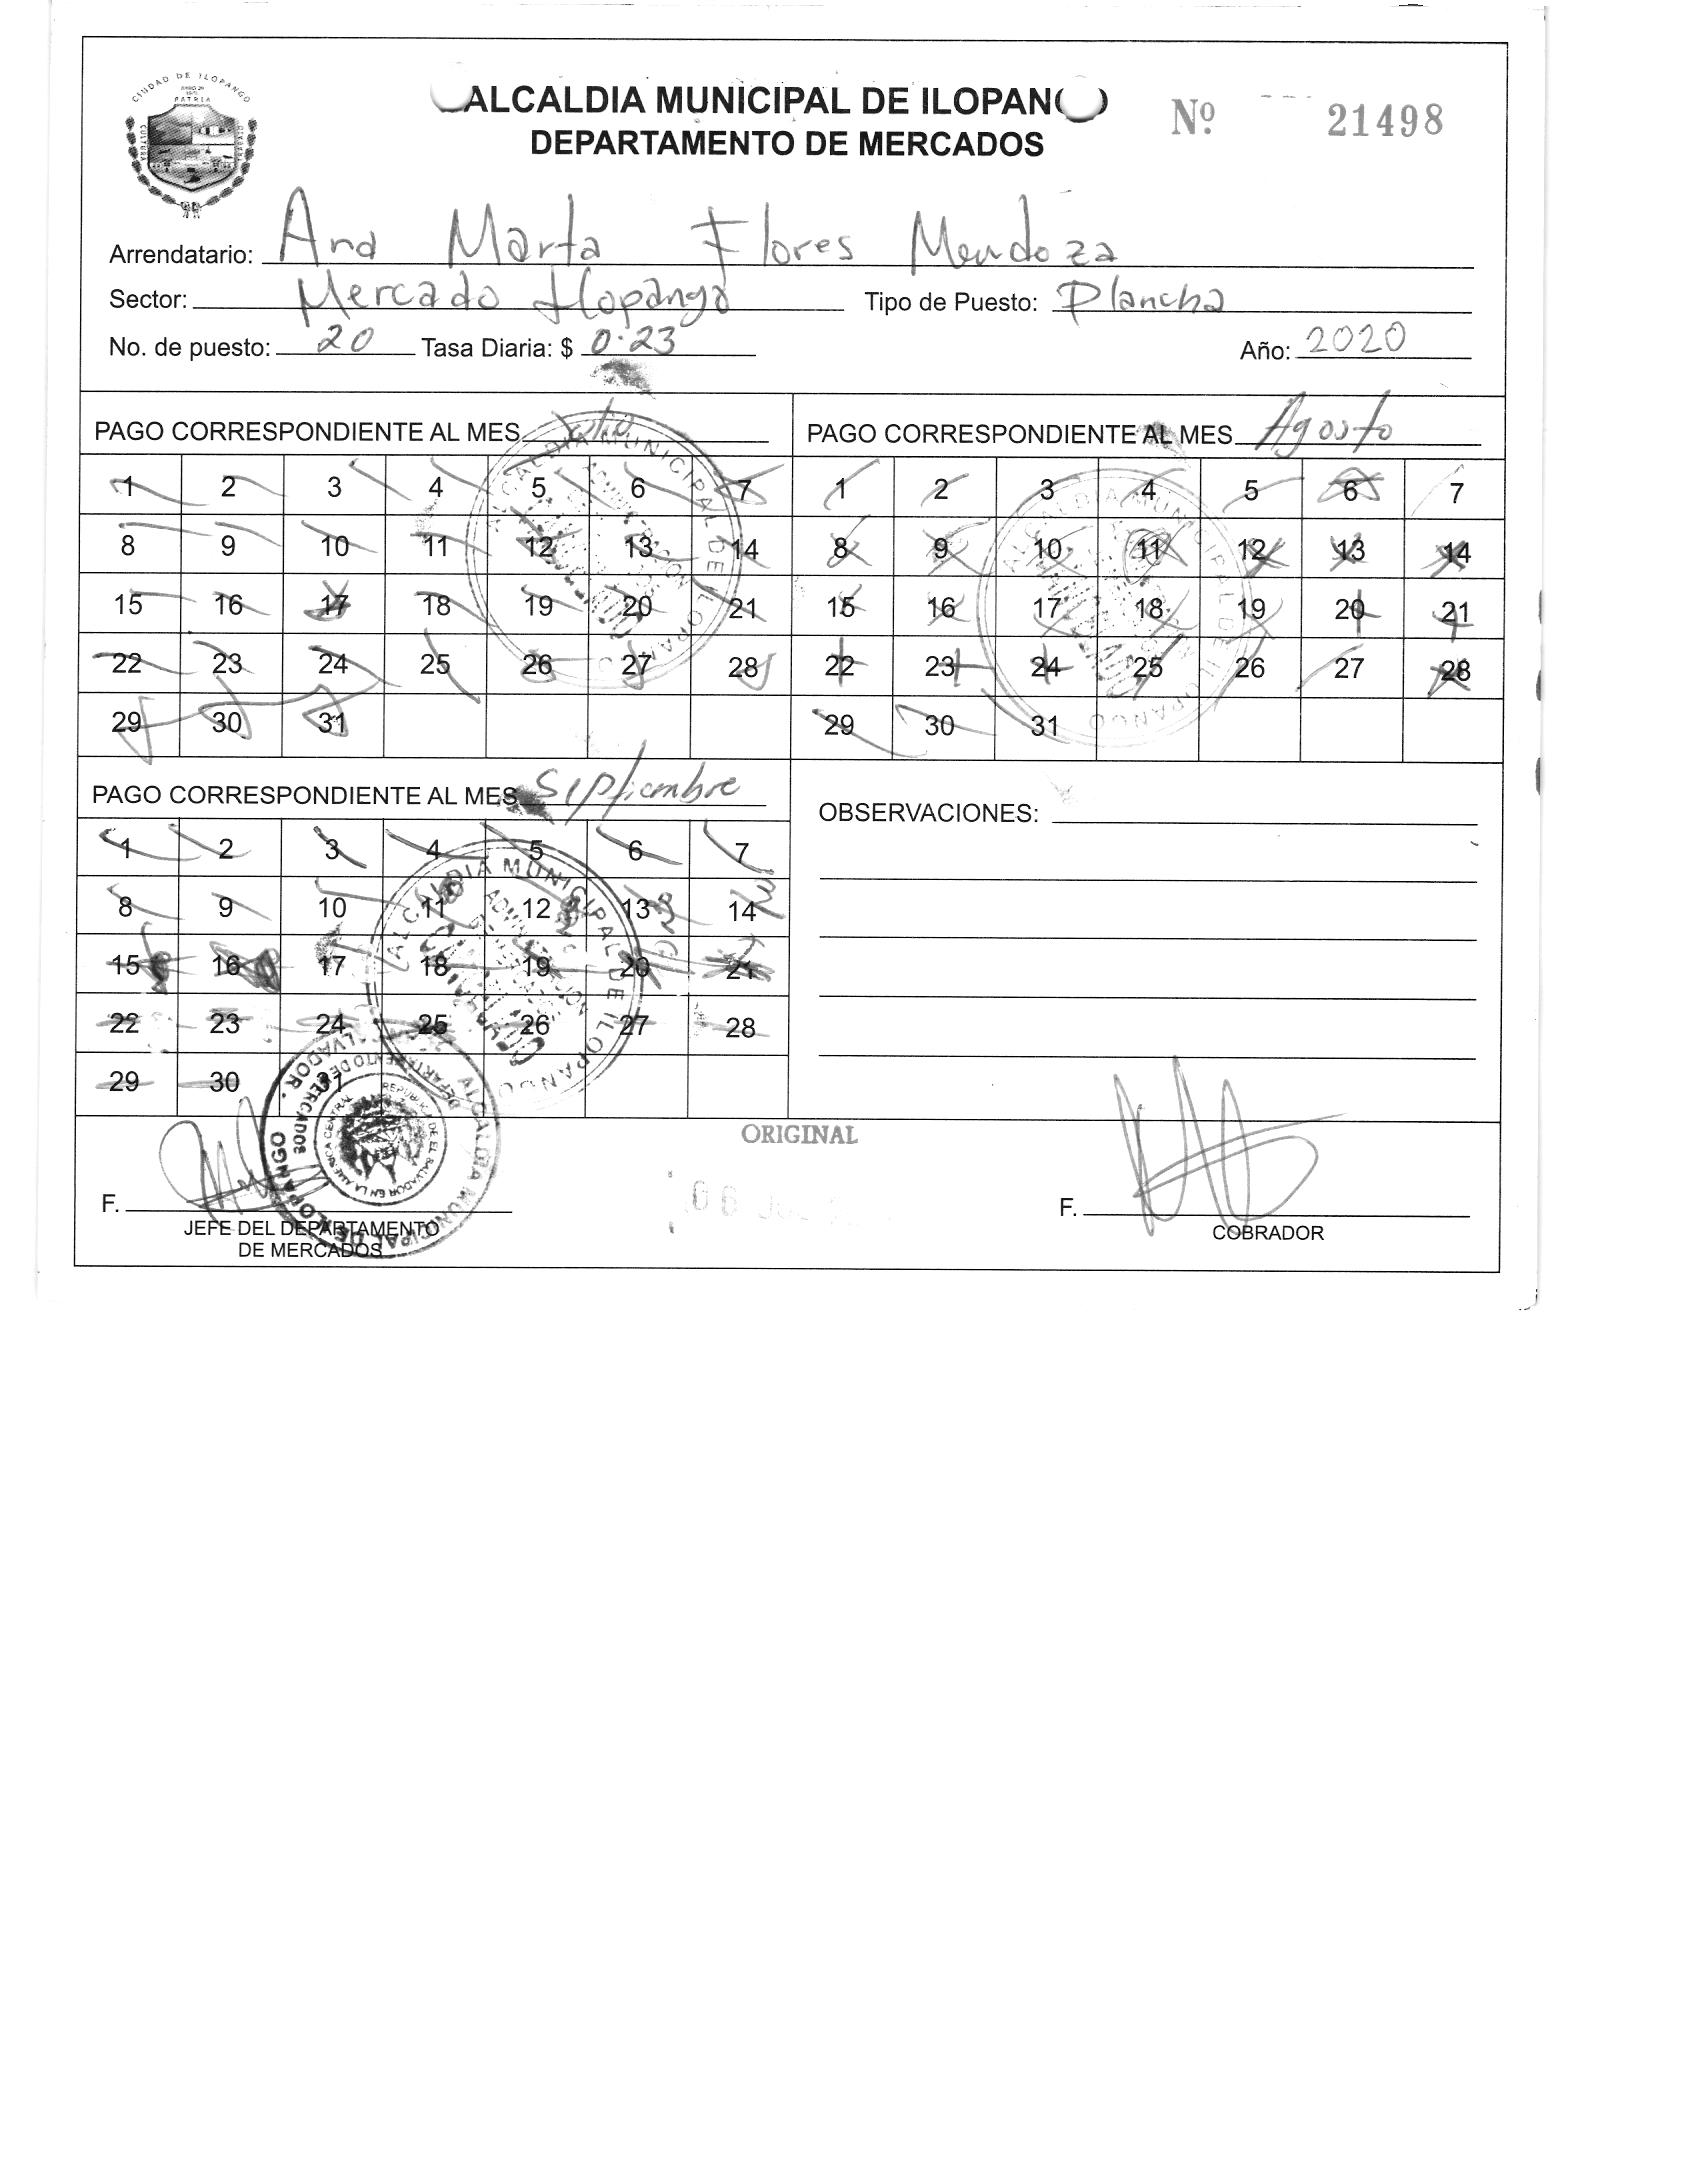 CIUDAD DE ILOPANGO
PATRIA
CULTURA
ALCALDIA MUNICIPAL DE ILOPANGO
DEPARTAMENTO DE MERCADOS
Nº 21498
Arrendatario: Ana Marta Flores Mendoza
Sector: Mercado Ilopango Tipo de Puesto: Plancha
No. de puesto: 20 Tasa Diaria: $ 0.23 Año: 2020
PAGO CORRESPONDIENTE AL MES Julio
1 2 3 4 5 6 7
8 9 10 11 12 13 14
15 16 17 18 19 20 21
22 23 24 25 26 27 28
29 30 31
ALCALDIA MUNICIPAL DE ILOPANGO
PAGO CORRESPONDIENTE AL MES Agosto
1 2 3 4 5 6 7
8 9 10 11 12 13 14
15 16 17 18 19 20 21
22 23 24 25 26 27 28
29 30 31
ALCALDIA MUNICIPAL DE ILOPANGO
PAGO CORRESPONDIENTE AL MES Septiembre
1 2 3 4 5 6 7
8 9 10 11 12 13 14
15 16 17 18 19 20 21
22 23 24 25 26 27 28
29 30 31
ALCALDIA MUNICIPAL DE ILOPANGO
OBSERVACIONES:
ORIGINAL
F.
JEFE DEL DEPARTAMENTO
DE MERCADOS
ALCALDIA MUNICIPAL DE ILOPANGO
DEPARTAMENTO DE MERCADOS
REPUBLICA DE EL SALVADOR EN LA AMERICA CENTRAL
F.
COBRADOR